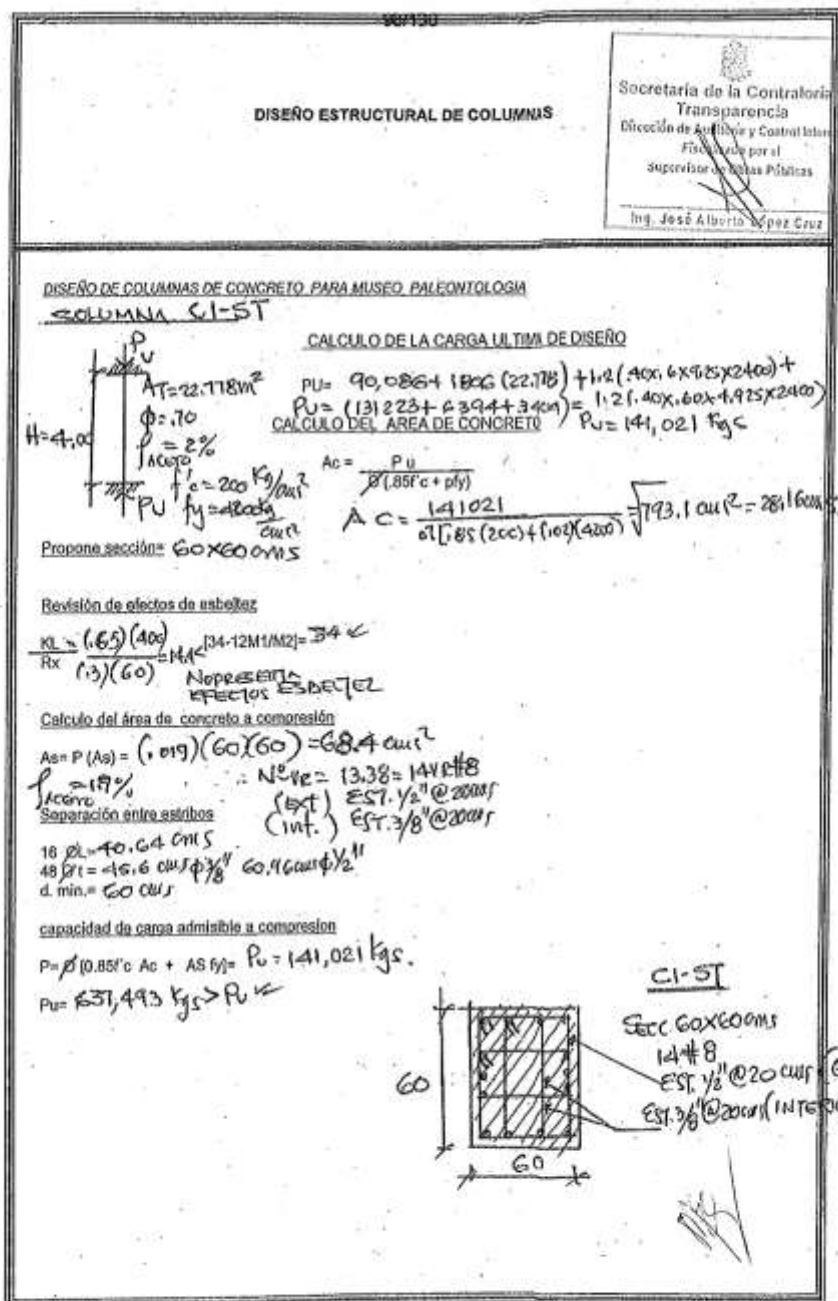 98/130
DISEÑO ESTRUCTURAL DE COLUMNAS
Secretaría de la Contraloría
Transparencia
Dirección de Auditoría y Control Intern
Fiscalizado por el
Supervisor de Obras Públicas
Ing. José Alberto López Cruz
DISEÑO DE COLUMNAS DE CONCRETO PARA MUSEO PALEONTOLOGIA
COLUMNA C1-ST
CALCULO DE LA CARGA ULTIMA DE DISEÑO
PU
AT=22.778m²
PU= 90,086+ 1806 (22.778) +1.2(.40x.6x9.25x2400)+
1.2(.40x.60x4.925x2400)
Φ=.70
PU= (131223+6394+3404)=
PU=141,021 Kgs
H=4.00
ρ ACERO = 2%
CALCULO DEL AREA DE CONCRETO
f'c=200 Kg/cm²
Ac = Pu / Ø(.85f'c + pfy)
PU fy=4200Kg/cm²
AC = 141021 / 0.7[.85(200)+(.02)(4200) = √793.1 cm² = 28.16cms
Propone sección= 60X60cms
Revisión de efectos de esbeltez
KL/Rx = (.65)(400)/(.3)(60) =14.4<[34-12M1/M2]= 34
NO PRESENTA
EFECTOS ESBELTEZ
Calculo del área de concreto a compresión
As= P (As) = (.019)(60)(60) =68.4 cms²
ρ ACERO =1.9%
∴ Nº VR= 13.38= 14VR#8
(EXT) EST. 1/2" @20cms
Separación entre estribos
(int.) EST. 3/8" @20cms
16 ØL=40.64 cms
48 Øt = 45.6 cms ϕ3/8" 60.96cms ϕ1/2"
d. min.= 60 cms
capacidad de carga admisible a compresion
P=Ø [0.85f'c Ac + AS fy]= Pu = 141,021 kgs.
Pu= 637,493 Kgs > Pu
C1-ST
SECC 60X60cms
14#8
EST. 1/2"@20 cms
EST. 3/8"@20cms(INTE
60
60